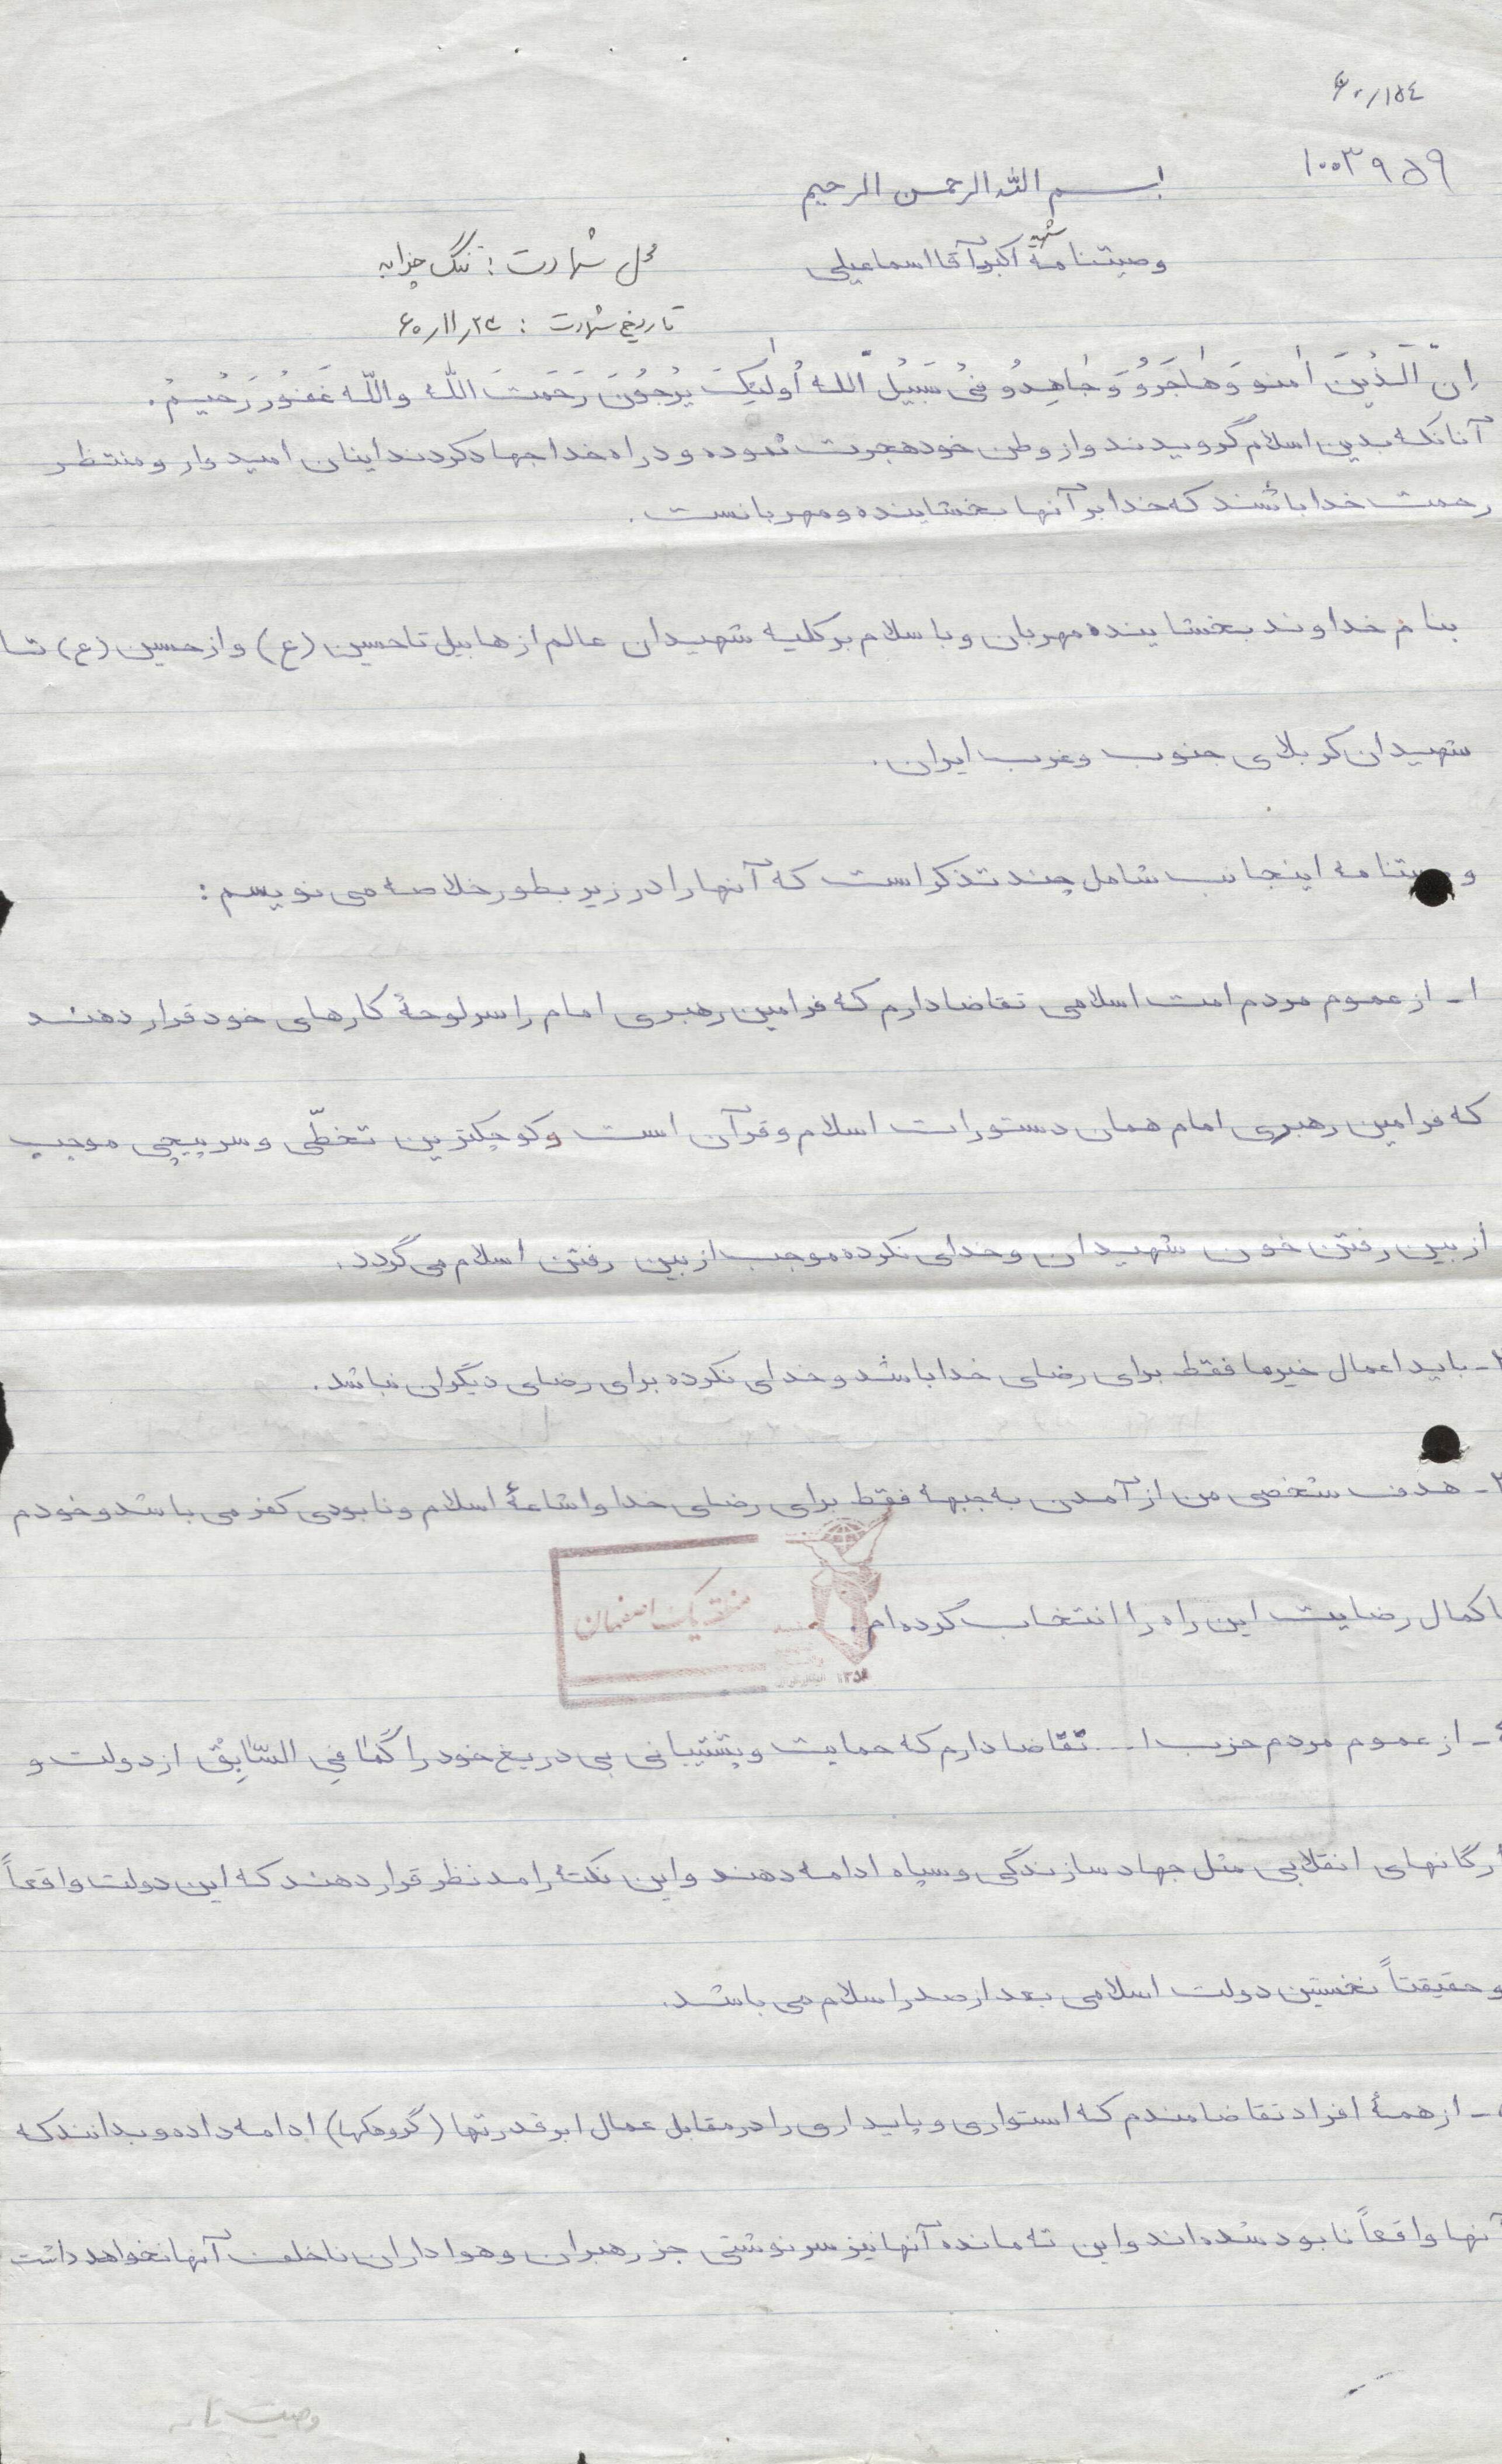 ۶۰/۱۵۴
۱۰۰۳۹۵۹
بسم الله الرحمن الرحیم
وصیتنامهٔ شهید اکبر آقا اسماعیلی
محل شهادت : تنگ چزابه
تاریخ شهادت : ۶۰٫۱۱٫۲۴
اِنَّ الَّذیْنَ اٰمنو وَهٰاجَروُ وَجٰاهِدوُ فیْ سَبیْلِ اللّه اُولٰئِکَ یَرْجوُنَ رَحْمَتَ اللّٰه واللّه غَفوُر رَحْیمْ.
آنانکه بدین اسلام گرویدند و از وطن خود هجرت نموده و در راه خدا جهاد کردند اینان امیدوار و منتظر
رحمت خدا باشند که خدا بر آنها بخشاینده و مهربانست .
بنام خداوند بخشاینده مهربان و با سلام بر کلیه شهیدان عالم از هابیل تا حسین (ع) و از حسین (ع) تا
شهیدان کربلای جنوب و غرب ایران .
وصیتنامه اینجانب شامل چند تذکر است که آنها را در زیر بطور خلاصه می نویسم :
۱- از عموم مردم امت اسلامی تقاضا دارم که فرامین رهبری امام را سرلوحهٔ کارهای خود قرار دهند
که فرامین رهبری امام همان دستورات اسلام و قرآن است و کوچکترین تخطّی و سرپیچی موجب
از بین رفتن خون شهیدان و خدای نکرده موجب از بین رفتن اسلام می گردد .
۲- باید اعمال خیر ما فقط برای رضای خدا باشد و خدای نکرده برای رضای دیگران نباشد .
۳- هدف شخصی من از آمدن به جبهه فقط برای رضای خدا و اشاعهٔ اسلام و نابودی کفر می باشد و خودم
با کمال رضایت این راه را انتخاب کرده ام .
منطقه یک اصفهان
۴- از عموم مردم حزب ا... تقاضا دارم که حمایت و پشتیبانی بی دریغ خود را کَمٰا فِی السّٰابِقْ از دولت و
ارگانهای انقلابی مثل جهاد سازندگی و سپاه ادامه دهند و این نکتهٔ را مد نظر قرار دهند که این دولت واقعاً
و حقیقتاً نخستین دولت اسلامی بعد از صدر اسلام می باشد .
۵- از همهٔ افراد تقاضامندم که استواری و پایداری را در مقابل عمال ابرقدرتها (گروهکها) ادامه داده و بدانند که
آنها واقعاً نابود شده اند و این ته مانده آنها نیز سرنوشتی جز رهبران و هواداران ناخلف آنها نخواهد داشت
وصیت نامه